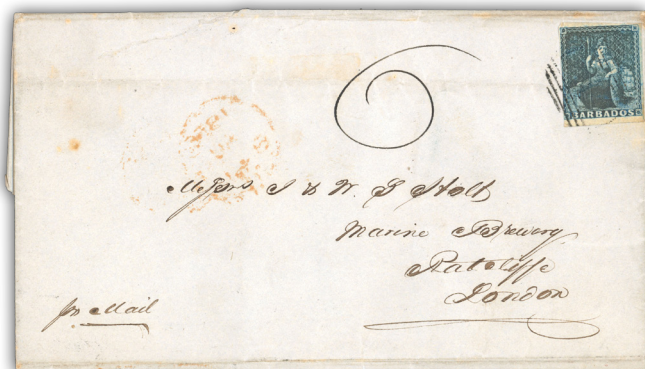 6
BARBADOS
Messrs J & W. S Stolt
Marine Brewery
Ratcliffe
London
pr Mail